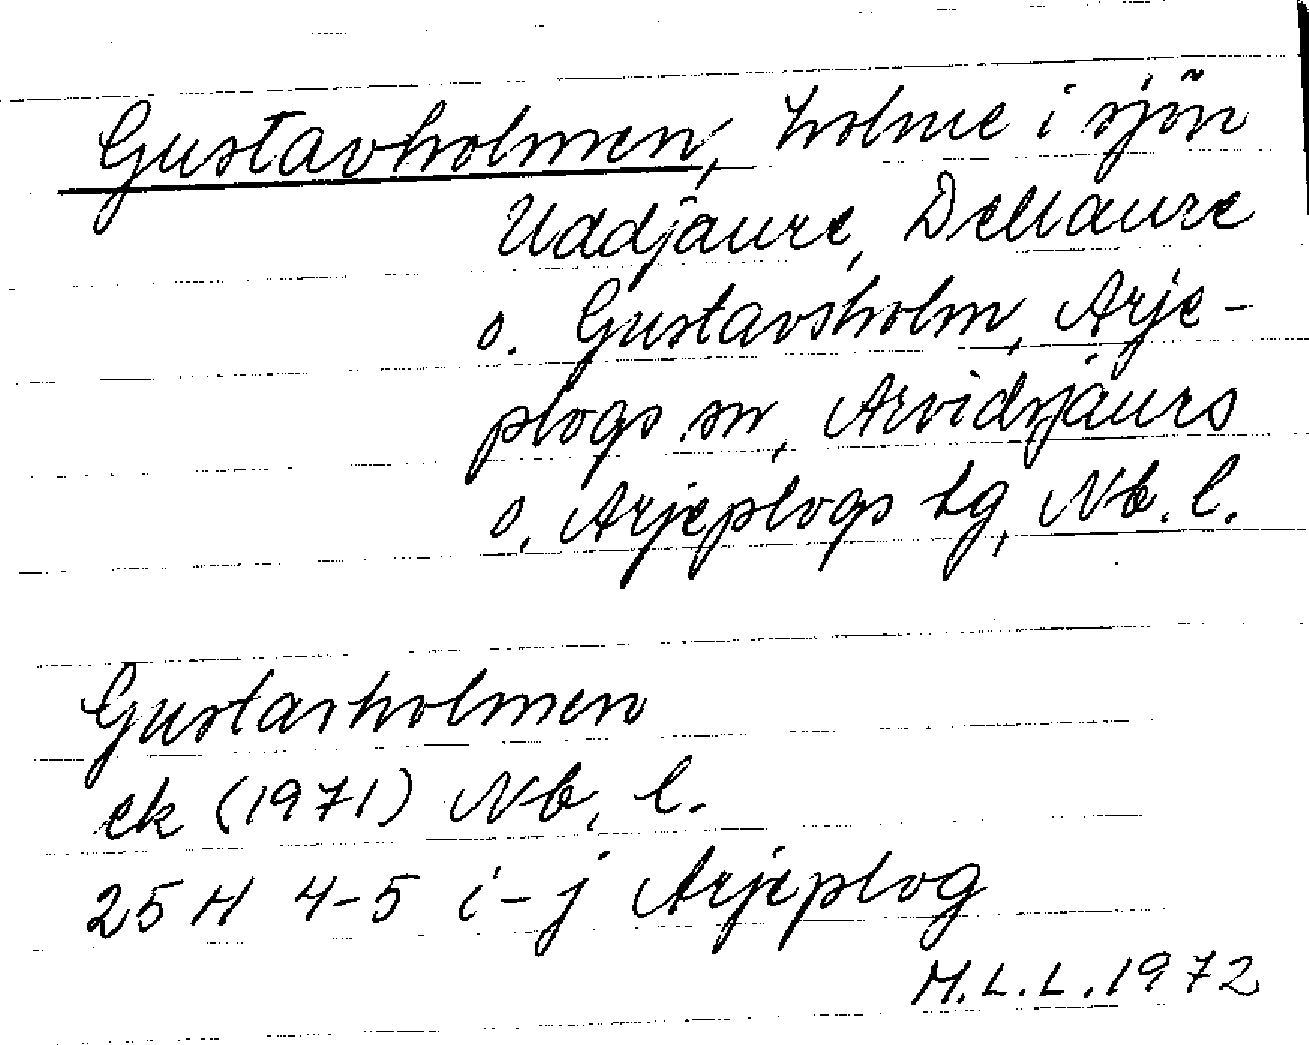 Gustavholmen, holme i sjön
Uddjaure, Dellaure
o. Gustavsholm, Arje-
plogs sn, Arvidsjaurs
o. Arjeplogs tg, Nb. l.
Gustavholmen
ek (1971) Nb. l.
25 H 4-5 i-j Arjeplog
M.L.L. 1972